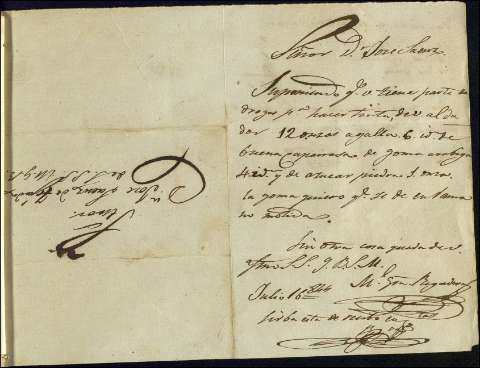 Señor Dn Jose Saenz
Suponiendo qe. v tiene parte de
drogas pa. hacer tinta, dev al da
dor 12 onzas agallas 6 id de
buena caparrosa de goma arabiga
4 id. y de azucar piedra 1 onza
la goma quiero qe. se de en rama
no molida.
Sin otra cosa queda de v.
afmo S. S. Q. B. S. M.
Julio 16 M.
Sirba esta de recibo
Señor
Dn Jose Saenz de